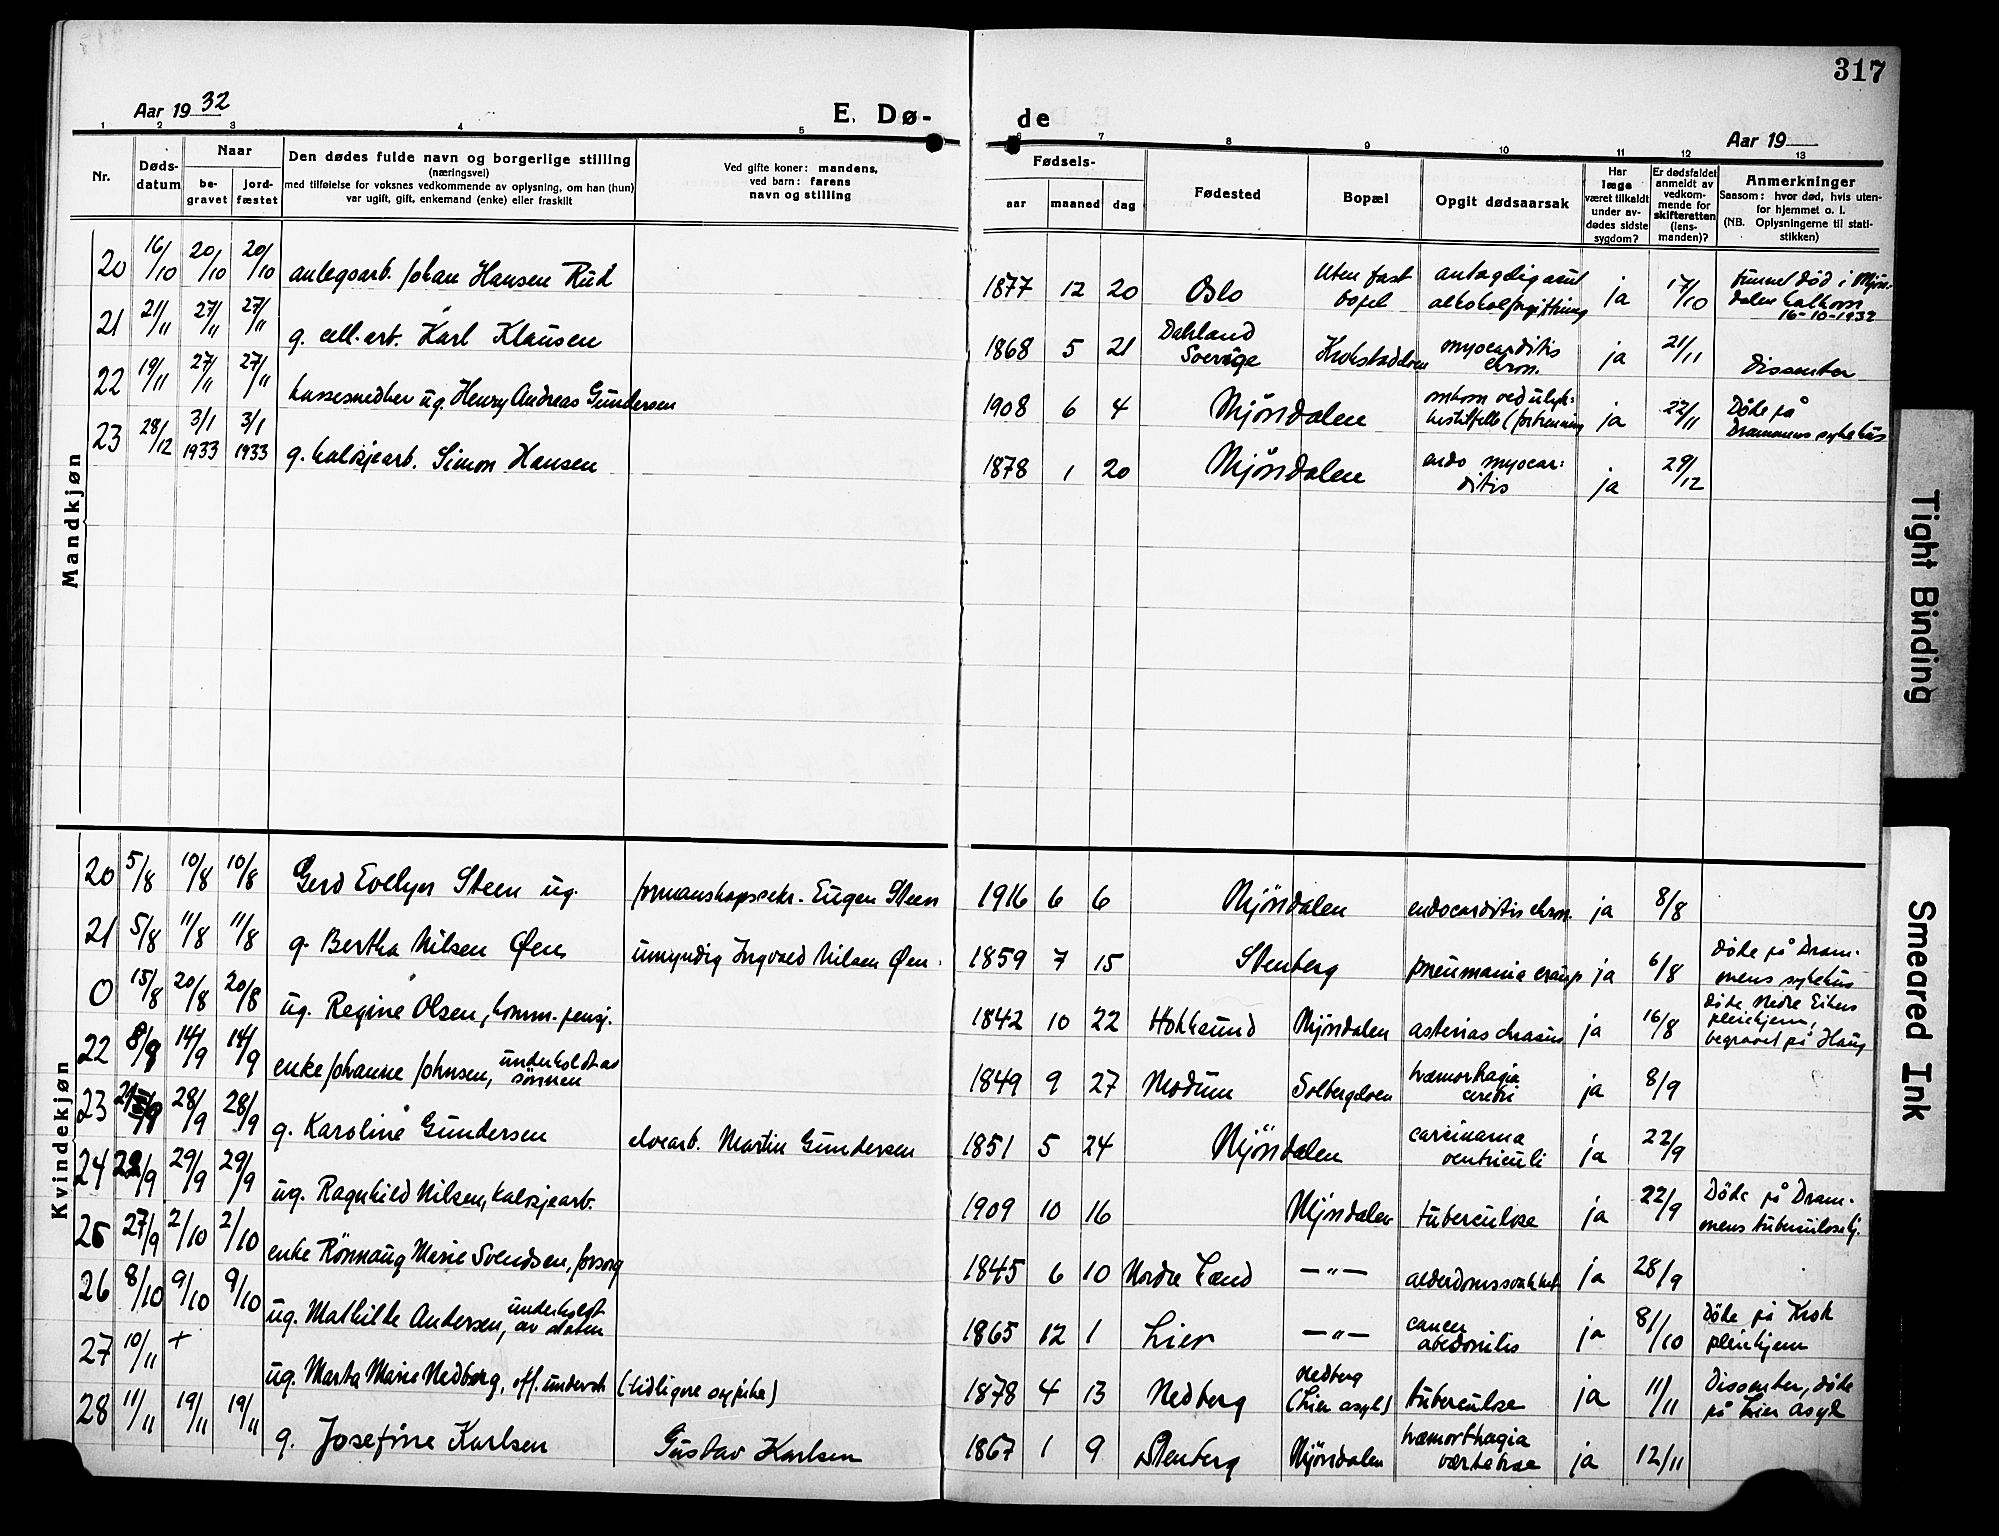 317
Aar 1932
E. Dø-
de
Aar 19
1 2 3 4 5 6 7 8 9 10 11 12 13
Nr.
Døds-
datum
Naar
be-
gravet
jord-
fæstet
Den dødes fulde navn og borgerlige stilling
(næringsvei)
med tilføielse for voksnes vedkommende av oplysning, om han (hun)
var ugift, gift, enkemand (enke) eller fraskilt
Ved gifte koner: mandens,
ved barn: farens
navn og stilling
Fødsels-
aar maaned dag
Fødested
Bopæl
Opgit dødsaarsak
Har
læge
været tilkaldt
under av-
dødes sidste
sygdom?
Er dødsfaldet
anmeldt av
vedkom-
mende for
skifteretten
(lens-
manden)?
Anmerkninger
Saasom: hvor død, hvis uten-
for hjemmet o. l.
(NB. Oplysningerne til stati-
stikken)
Mandkjøn
20 16/10 20/10 20/10 anlegsarb. Johan Hansen Rud 1877 12 20 Oslo Uten fast bopel antagelig alkoholforgiftning ja 17/10 funnet død i Mjøn-
dalen kalkovn
16-10-1932
21 21/11 27/11 27/11 g. cell.arb. Karl Klausen 1868 5 21 Dalsland Sverige Krokstadelven myocarditis chron. ja 21/11 Dissenter
22 19/11 27/11 27/11 kassesnedker ug. Henry Andreas Gundersen 1908 6 4 Mjöndalen omkom ved ulyk-
kestilfelle (forbrenning ja 22/11 Døde på
Drammens sykehus
23 28/12 3/1 1933 3/1 1933 g. kalosjearb. Simon Hansen 1878 1 20 Mjöndalen endo myocar-
ditis ja 29/12
Kvindekjøn
20 5/8 10/8 10/8 Gerd Evelyn Steen ug. formanskapssekr. Eugen Steen 1916 6 6 Mjöndalen endocarditis chron. ja 8/8
21 5/8 11/8 11/8 g. Bertha Nilsen Øen umyndig Ingvald Nilsen Øen. 1859 7 15 Stenberg pneumonia croup ja 6/8 Døde på Dram-
mens sykehus
0 15/8 20/8 20/8 ug. Regine Olsen, komm. pensj. 1842 10 22 Hokksund Mjöndalen ja 16/8 Døde Nedre Eikers
pleiehjem,
begravet på Haug
22 8/9 14/9 14/9 enke Johanne Johnsen, underholdt av
sönnen 1849 9 27 Modum Solbergelven hæmorhagia
cerebri ja 8/9
23 28/9 28/9 g. Karoline Gundersen elvearb. Martin Gundersen 1851 5 24 Mjöndalen carcinoma
ventriculi ja 22/9
24 22/9 29/9 29/9 ug. Ragnhild Nilsen, kalosjearb. 1909 10 16 Mjöndalen tuberculose ja 22/9 Døde på Dram-
mens tuberculosehj.
25 27/9 2/10 2/10 enke Rönnaug Marie Svendsen, forsorg 1845 6 10 Nordre Land —"— alderdomssvakhet ja 28/9
26 8/10 9/10 9/10 ug. Mathilde Andersen, underholdt
av staten 1865 12 1 Lier —"— cancer
abdominis ja 8/10 Døde på Krok
pleiehjem
27 10/11 + ug. Marta Marie Nedberg, off. underst. (tidligere sypike) 1878 4 13 Nedberg Nedberg
(Lier asyl) tuberculose ja 11/11 Dissenter, døde
på Lier Asyl
28 11/11 19/11 19/11 g. Josefine Karlsen Gustav Karlsen 1867 1 9 Stenberg Mjöndalen hæmorthagia ja 12/11
Tight Binding
Smeared Ink